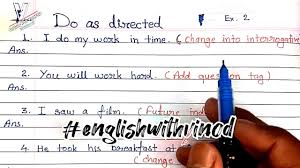 Do as directed
Ex. 2
1. I do my work in time. (Change into interrogative
Ans.
2. You will work hard. (Add question tag)
Ans.
3. I saw a film. (Future ind
#englishwithvinod
4. He took his breakfast at
(change